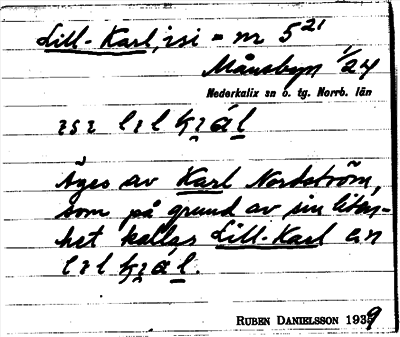 Lill-Karl, isi = nr 5²¹
Månsbyn 1/24
Nederkalix sn o. tg. Norrb. län
Äges av Karl Nordström,
som på grund av sin liten-
het kallas Lill-Karl en
RUBEN DANIELSSON 1939